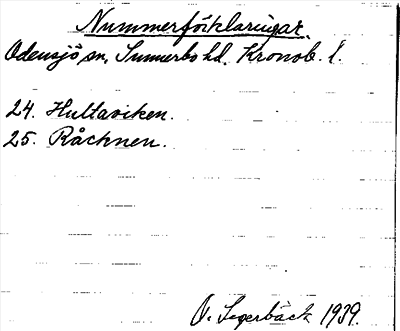 Nummerförklaringar.
Odensjö sn, Sunnerbo hd. Kronob. l.
24. Hultaviken.
25. Råcknen.
O. Segerbäck 1939.